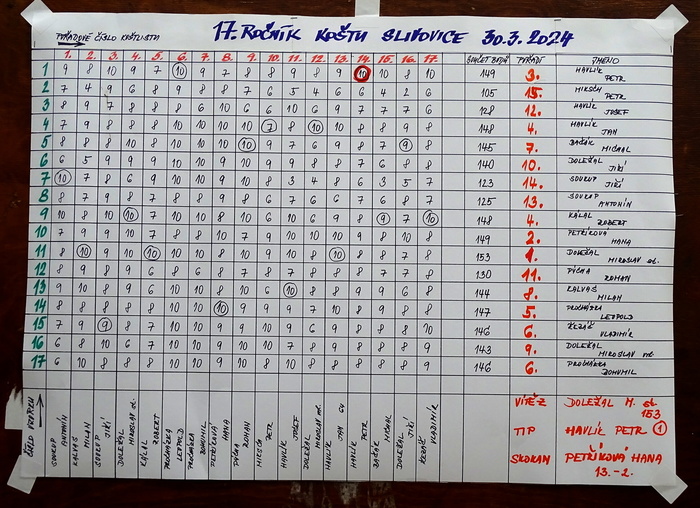 17. ROČNÍK KOŠTU SLIVOVICE 30.3.2024
POŘADOVÉ ČÍSLO KOŠTUJÍCÍHO
1. 2. 3. 4. 5. 6. 7. 8. 9. 10. 11. 12. 13. 14. 15. 16. 17. SOUČET BODŮ POŘADÍ JMÉNO
1 9 8 10 9 7 10 9 7 8 8 9 8 9 10 10 8 10 149 3. HAVLÍK PETR
2 7 4 9 6 8 9 8 8 7 6 5 4 6 6 4 2 6 105 15. MIKSCH PETR
3 8 9 7 8 8 8 6 10 6 6 10 6 9 7 7 7 6 128 12. HAVLÍK JOSEF
4 7 9 8 8 8 10 10 10 10 7 8 10 8 8 8 9 8 148 4. HAVLÍK JAN
5 8 8 8 10 8 10 10 10 9 7 6 9 8 7 9 8 145 7. MICHAL
6 6 5 9 9 9 10 10 9 10 9 9 8 8 7 6 8 8 140 10. DOLEŽAL JIŘÍ
7 10 7 8 6 9 10 10 9 10 8 3 4 8 6 3 5 7 123 14. SOUKUP JIŘÍ
8 8 7 9 8 7 8 8 9 8 6 7 6 6 7 6 8 7 125 13. SOUKUP ANTONÍN
9 10 8 10 10 7 10 10 8 10 6 10 6 9 8 9 7 10 148 4. KÁLAL ROBERT
10 7 9 9 10 7 8 8 10 7 9 10 10 10 9 8 10 8 149 2. PETŘÍKOVÁ HANA
11 8 10 9 10 10 10 10 8 10 9 10 8 10 8 7 8 8 153 1. DOLEŽAL MIROSLAV st.
12 8 9 8 9 6 8 6 8 7 8 7 8 8 7 8 8 7 130 11. PÝCHA ROMAN
13 9 10 8 9 6 10 10 8 9 8 10 8 8 9 9 6 8 144 8. KALVAS MILAN
14 8 8 8 8 8 10 10 10 10 9 9 8 8 8 8 9 8 147 5. PROCHÁZKA LEOPOLD
15 7 9 9 8 7 10 10 9 9 10 9 6 9 8 8 8 10 146 6. VLADIMÍR
16 6 8 10 6 7 10 10 9 10 7 9 9 9 8 8 8 9 143 9. DOLEŽAL MIROSLAV ml.
17 6 10 8 8 8 10 10 9 10 8 10 8 8 8 8 8 9 146 6. PROCHÁZKA BOHUMIL
ČÍSLO VZORKU
SOUKUP ANTONÍN
KALVAS MILAN
SOUKUP JIŘÍ
DOLEŽAL MIROSLAV st.
KÁLAL ROBERT
PROCHÁZKA LEOPOLD
PROCHÁZKA BOHUMIL
PETŘÍKOVÁ HANA
PÝCHA ROMAN
MIKSCH PETR
HAVLÍK JOSEF
DOLEŽAL MIROSLAV ml.
HAVLÍK JAN
HAVLÍK PETR
MICHAL
DOLEŽAL JIŘÍ
VLADIMÍR
VÍTĚZ DOLEŽAL M. st 153
TIP HAVLÍK PETR 1
SKOKAN PETŘÍKOVÁ HANA 13.-2.